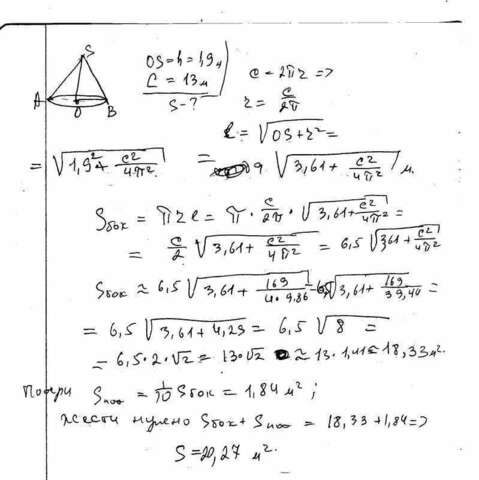 S
A
O
B
OS = h = 1,9 м
C = 13 м
S - ?
c = 2πr =>
r = c/2π
ℓ = √(OS + r²) =
= √(1,9² + c²/4π²) = √(3,61 + c²/4π²) м.
Sбок = πrℓ = π · c/2π · √(3,61 + c²/4π²) =
= c/2 √(3,61 + c²/4π²) = 6,5 √(3,61 + c²/4π²)
Sбок ≈ 6,5 √(3,61 + 169/4·9,86) = 6,5 √(3,61 + 169/39,44) =
= 6,5 √(3,61 + 4,29) = 6,5 √8 =
= 6,5 · 2 · √2 = 13·√2 ≈ 13 · 1,41 = 18,33 м².
Потери Sпот = 1/10 Sбок = 1,84 м² ;
жести нужно Sбок + Sпот = 18,33 + 1,84 =>
S = 20,27 м².